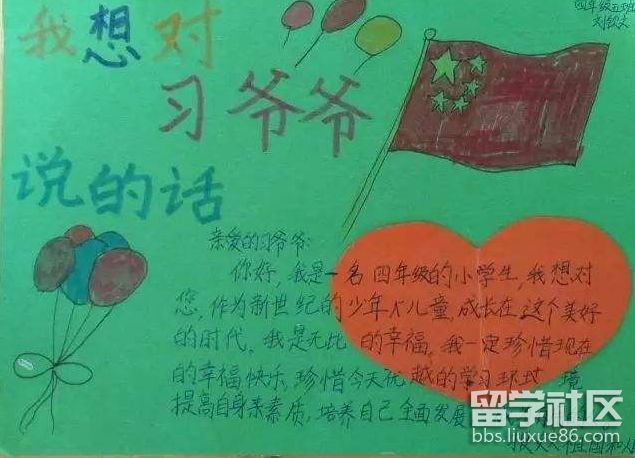 四年级五班
我想对
习爷爷
说的话
亲爱的习爷爷:
你好,我是一名四年级的小学生,我想对
您,作为新世纪的少年儿童,成长在这个美好
的时代,我是无比的幸福,我一定珍惜现在
的幸福快乐,珍惜今天优越的学习环境
提高自身素质,培养自己全面发展
留学社区
bbs.liuxue86.com